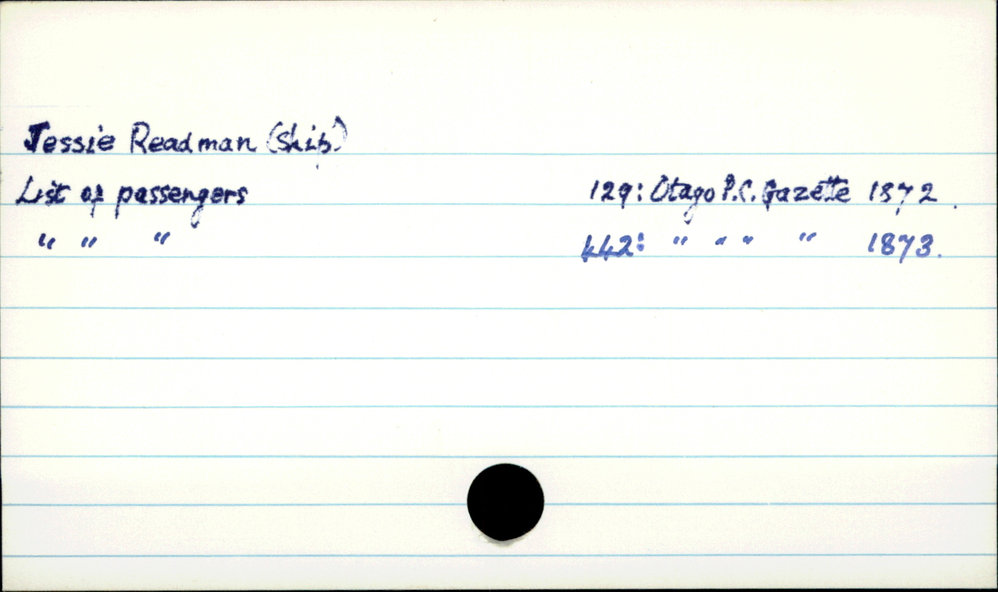 Jessie Readman (Ship)
List of passengers 129: Otago P.C. Gazette 1872.
" " " 442: " " " " 1873.